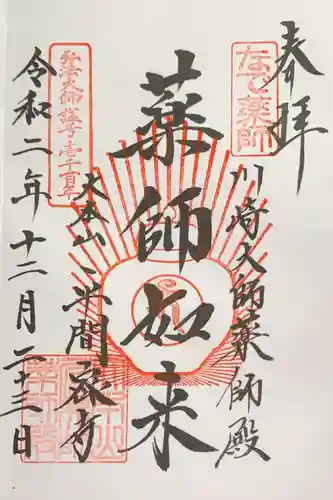 奉拝
なで薬師
川崎大師薬師殿
薬師如来
弘法大師諡号壱千百年
大本山 平間寺
令和二年十二月二十三日